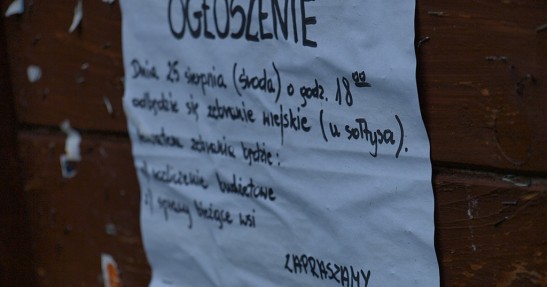 OGŁOSZENIE
Dnia 25 sierpnia (środa) o godz. 18⁰⁰
odbędzie się zebranie wiejskie (u sołtysa).
tematem zebrania będzie:
1) rozliczenie budżetowe
2) sprawy bieżące wsi
ZAPRASZAMY